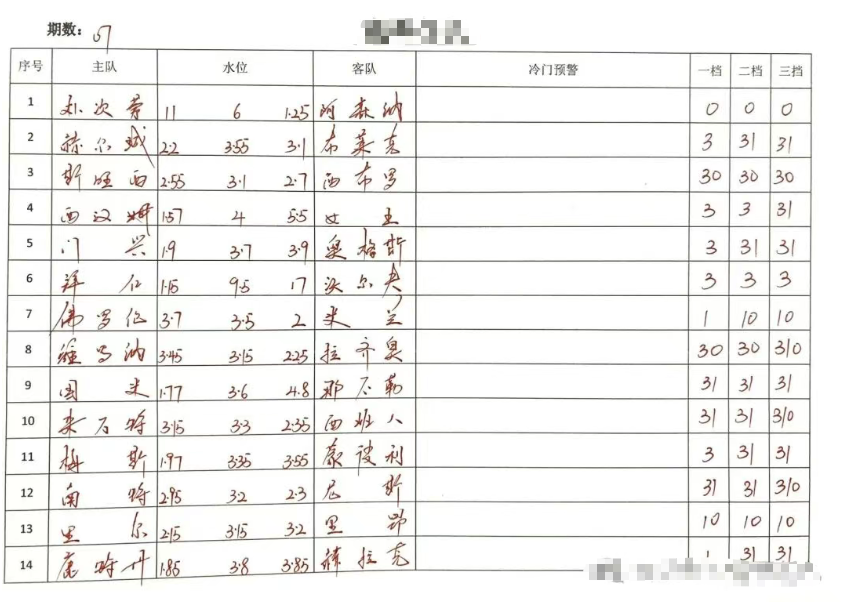 期数：
序号 主队 水位 客队 冷门预警 一档 二档 三挡
1 11 6 1·25 阿森纳 0 0 0
2 赫尔城 2·2 3·55 3·1 布莱克 3 31 31
3 斯旺西 2·55 3·1 2·7 西布罗 30 30 30
4 西汉姆 1·57 4 5·5 女王 3 3 31
5 门兴 1·9 3·7 3·9 奥格斯 3 31 31
6 拜仁 1·15 9·5 17 沃尔夫 3 3 3
7 佛罗伦 3·7 3·5 2 米兰 1 10 10
8 维罗纳 3·45 3·15 2·25 拉齐奥 30 30 310
9 国米 1·77 3·6 4·8 那不勒 31 31 31
10 莱万特 3·15 3·3 2·35 西班人 31 31 310
11 梅斯 1·97 3·35 3·55 蒙彼利 3 31 31
12 南特 2·95 3·2 2·3 尼斯 31 31 310
13 里尔 2·15 3·15 3·2 里昂 10 10 10
14 鹿特丹 1·85 3·8 3·85 赫拉克 1 31 31